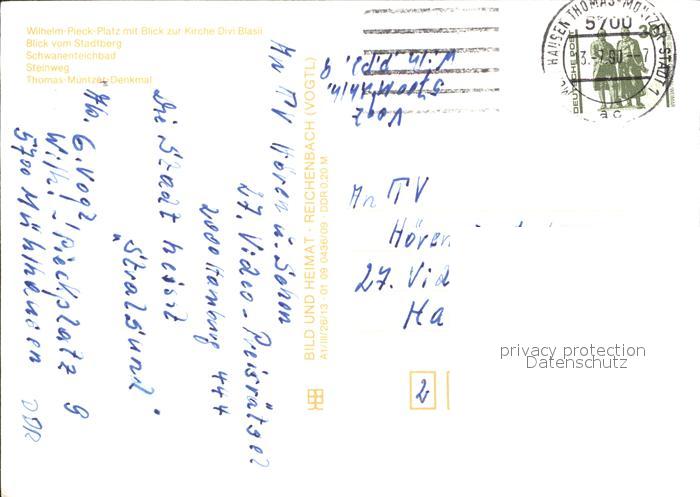 Wilhelm-Pieck-Platz mit Blick zur Kirche Divi Blasii
Blick vom Stadtberg
Schwanenteichbad
Steinweg
Thomas-Müntzer-Denkmal
An TV Hören u. Sehen
27. Video-Preisrätsel
2000 Hamburg 444
Die Stadt heisst
"Stralsund"
Abs. G. Vogt
Wilh.-Pieckplatz 9
5700 Mühlhausen DDR
BILD UND HEIMAT · REICHENBACH (VOGTL)
A1/III/26/13 · 01 09 0436/09 · DDR 0,20 M
Vogt
Wilh. 9
5700
THOMAS-MÜNTZER-STADT 1
90
-7
ac
DEUTSCHE POST
An TV
Hören
27. Vid
Ha
2
privacy protection
Datenschutz